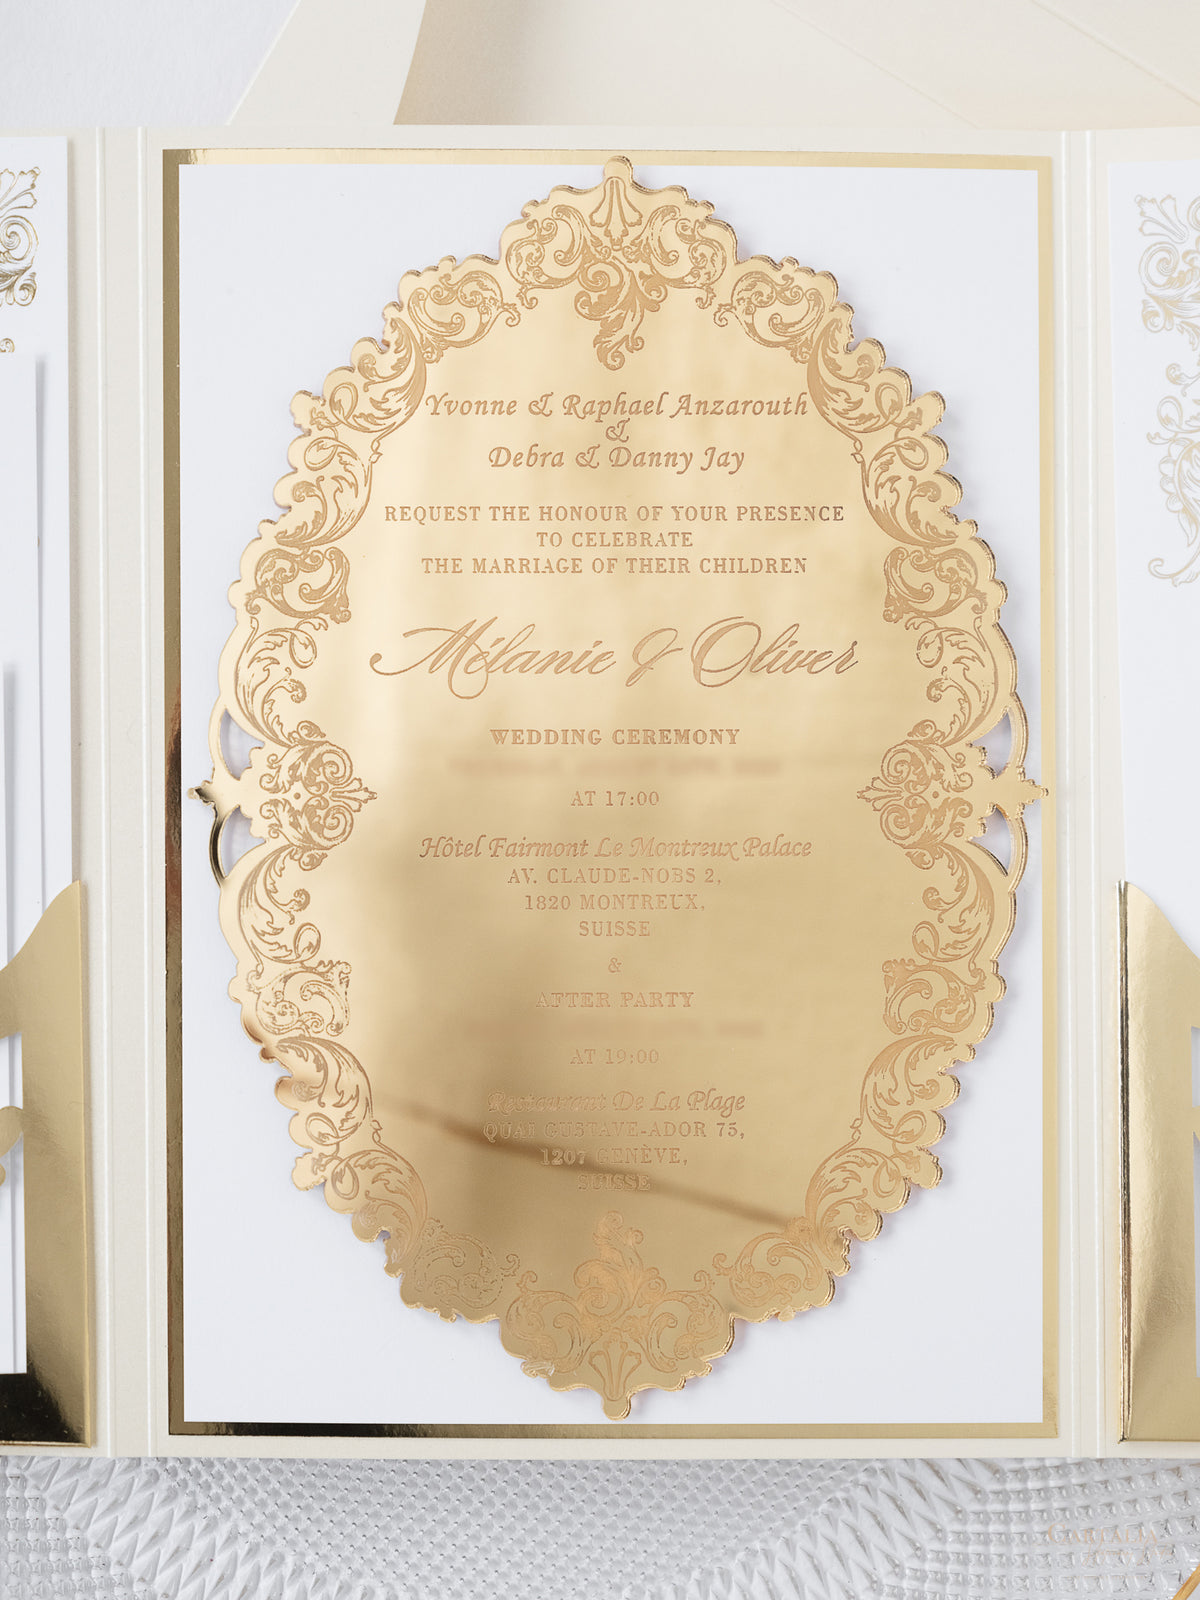 Yvonne & Raphael Anzarouth
&
Debra & Danny Jay
REQUEST THE HONOUR OF YOUR PRESENCE
TO CELEBRATE
THE MARRIAGE OF THEIR CHILDREN
Mélanie & Oliver
WEDDING CEREMONY
AT 17:00
Hôtel Fairmont Le Montreux Palace
AV. CLAUDE-NOBS 2,
1820 MONTREUX,
SUISSE
&
AFTER PARTY
AT 19:00
Restaurant De La Plage
QUAI GUSTAVE-ADOR 75,
1207 GENÈVE,
SUISSE